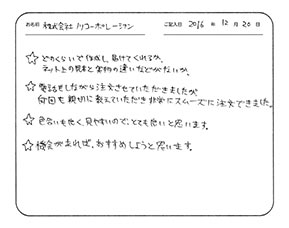 お名前 株式会社ノリコーポレーション ご記入日 2016 年 12 月 20 日
☆どのくらいで作成し、届けてくれるか。
ネット上の見本と実物の違いなどがないか。
☆電話をしながら注文させていただきましたが
何回も親切に教えていただき非常にスムーズに注文できました。
☆色合いも良く、見やすいので、とても良いと思います。
☆機会があれば、おすすめしようと思います。